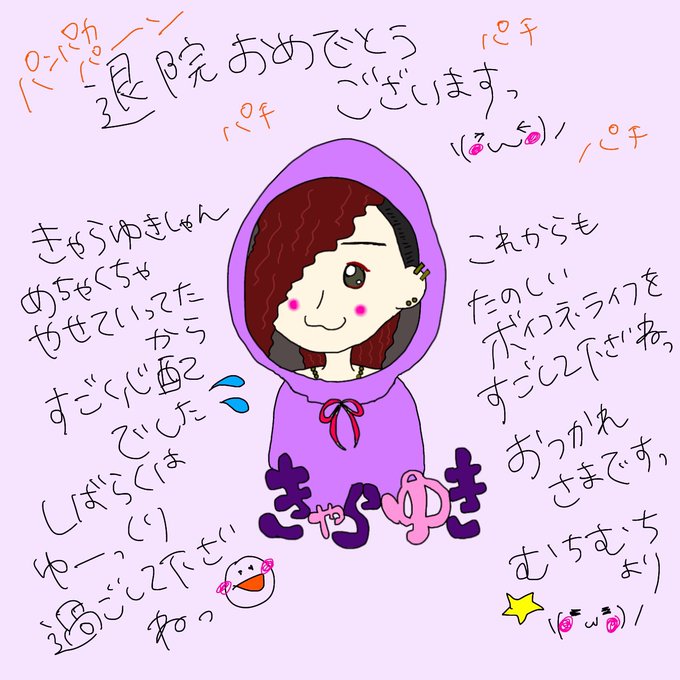 パンパカ
パーーン
退院おめでとう
ございますっ
パチ
パチ
パチ
\(>ω<)/
きゃらゆきしゃん
めちゃくちゃ
やせていってた
から
すごく心配
でした
しばらくは
ゆーっくり
過ごして下さい
ねっ
これからも
たのしい
ボイコネライフを
すごして下さいねっ
おつかれ
さまですっ
むちむち
より
\(=ω=)/
きゃらゆき